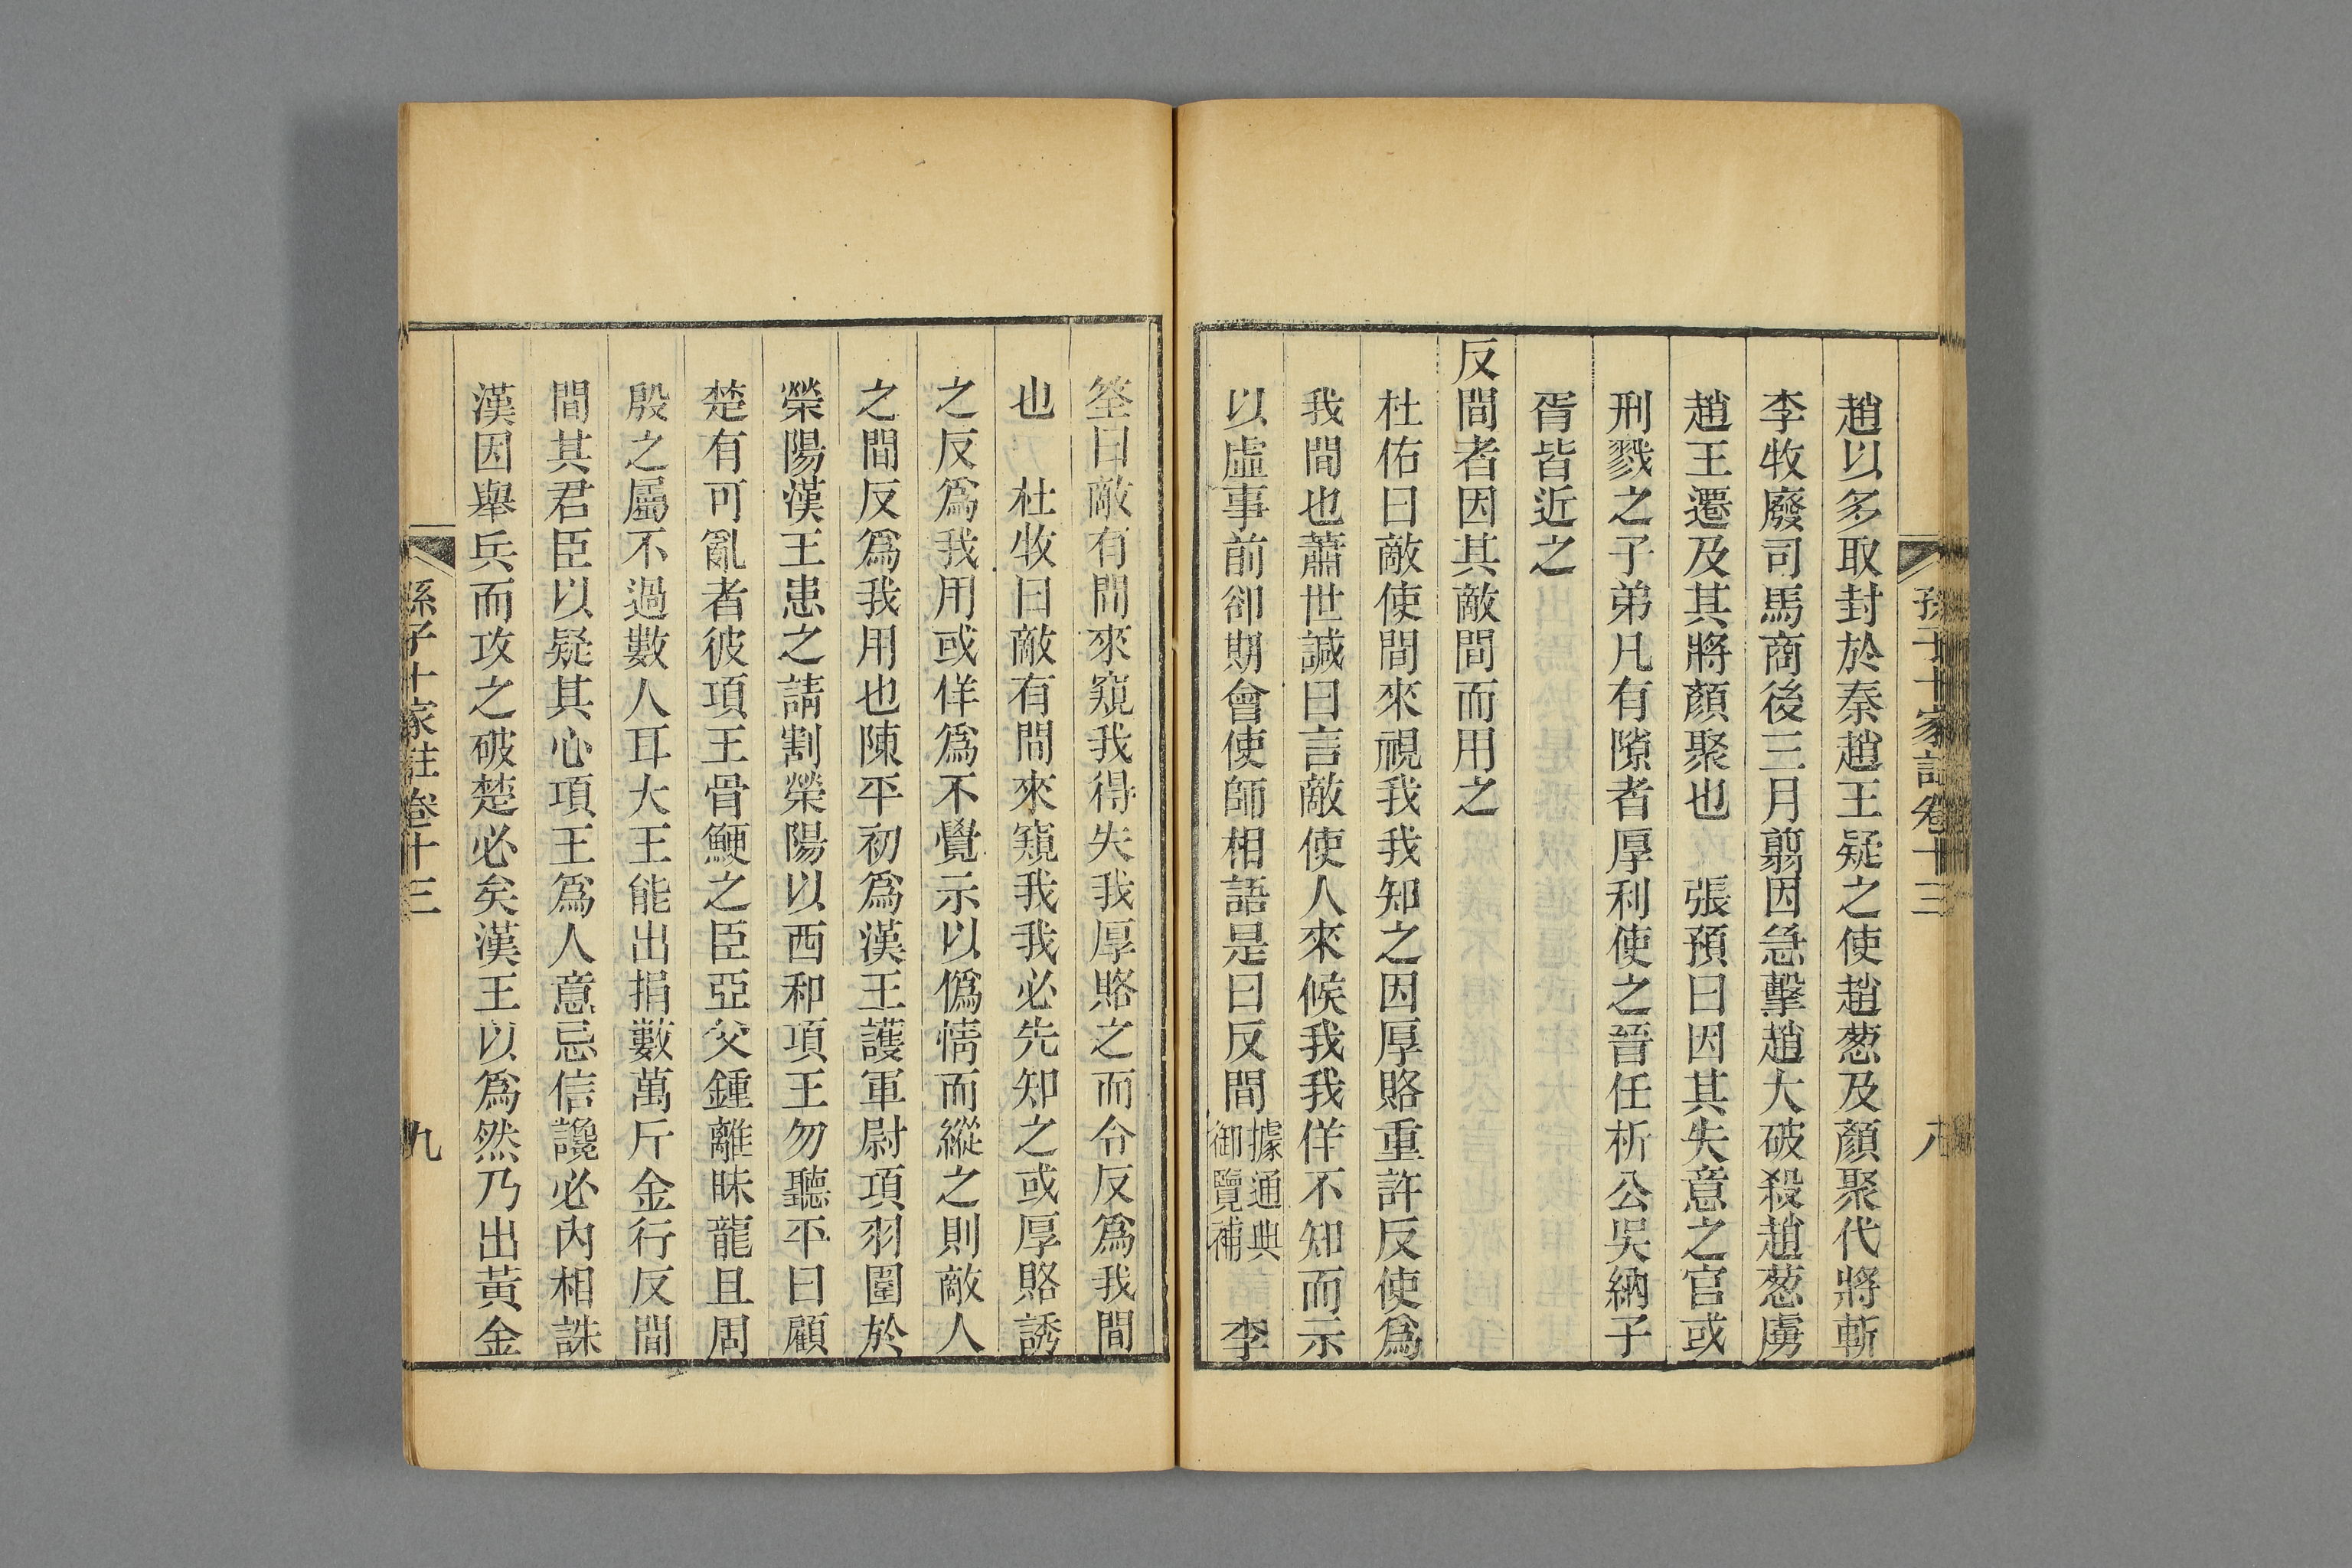 孫子十家註卷十三 八
趙以多取封於秦趙王疑之使趙葱及顏聚代將斬
李牧廢司馬商後三月翦因急擊趙大破殺趙葱虜
趙王遷及其將顏聚也 張預曰因其失意之官或
刑戮之子弟凡有隙者厚利使之晉任析公吳納子
胥皆近之
反間者因其敵間而用之
杜佑曰敵使間來視我我知之因厚賂重許反使爲
我間也蕭世諴曰言敵使人來候我我佯不知而示
以虛事前卻期會使師相語是曰反間據通典御覽補 李
筌曰敵有間來窺我得失我厚賂之而令反爲我間
也 杜牧曰敵有間來窺我我必先知之或厚賂誘
之反爲我用或佯爲不覺示以僞情而縱之則敵人
之間反爲我用也陳平初爲漢王護軍尉項羽圍於
榮陽漢王患之請割榮陽以西和項王勿聽平曰顧
楚有可亂者彼項王骨鯁之臣亞父鍾離眛龍且周
殷之屬不過數人耳大王能出捐數萬斤金行反間
間其君臣以疑其心項王爲人意忌信讒必內相誅
漢因舉兵而攻之破楚必矣漢王以爲然乃出黃金
孫子十家註卷十三 九